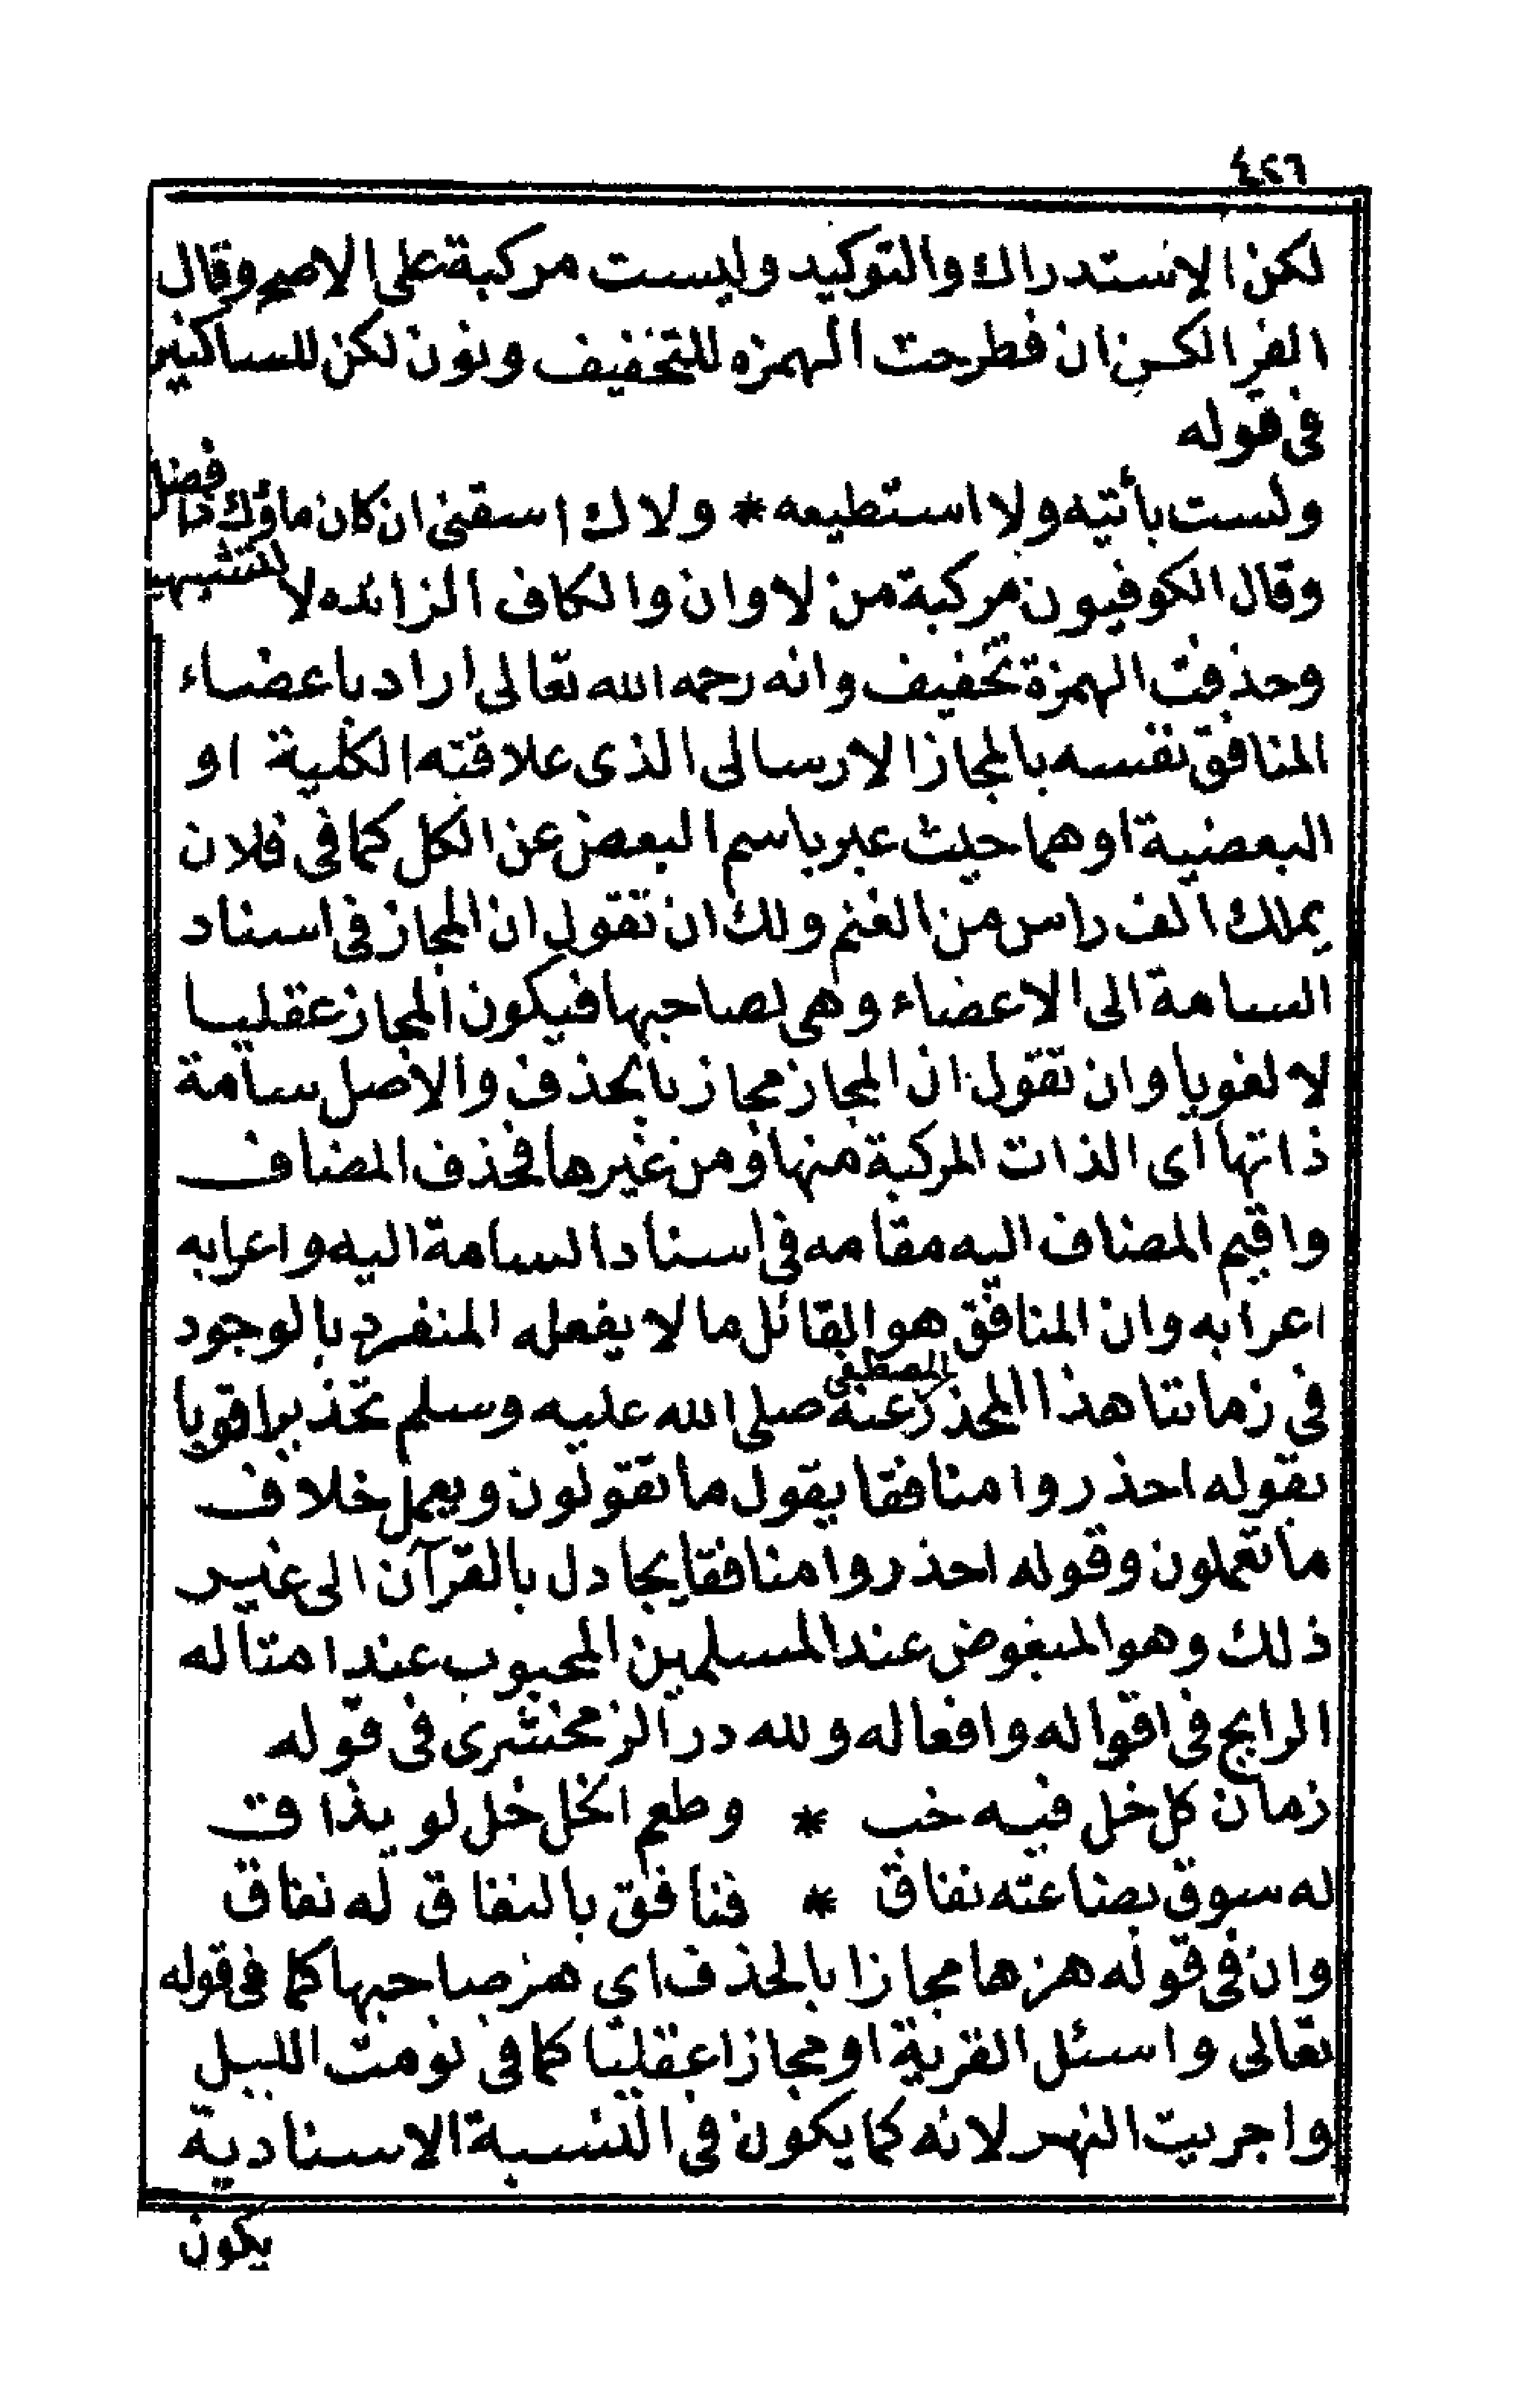 ٤٢٦
لكن الاستدراك والتوكيد وليست مركبة على الاصح وقال
الفرا الكن ان فطرحت الهمزه للتخفيف ونون لكن للساكنين
فى قوله
ولست بأتيه ولا استطيعه * ولاك اسقنى ان كان ماؤك ذا فضل
وقال الكوفيون مركبة من لا وان والكاف الزائده لا للتشبيه
وحذفت الهمزة تخفيف وانه رحمه الله تعالى اراد باعضاء
المنافق نفسه بالمجاز الارسالى الذى علاقته الكلية او
البعضية او هما حيث عبر باسم البعض عن الكل كما فى فلان
يملك الف راس من الغنم ولك ان تقول ان المجاز فى اسناد
السامة الى الاعضاء وهى لصاحبها فيكون المجاز عقليا
لا لغويا وان تقول ان المجاز مجاز بالحذف والاصل سآمة
ذاتها اى الذات المركبة منها ومن غيرها فحذف المضاف
واقيم المضاف اليه مقامه فى اسناد السامة اليه واعرابه
اعرابه وان المنافق هو القائل ما لا يفعله المنفرد بالوجود
فى زماننا هذا المحذر عنه المصطفى صلى الله عليه وسلم تحذيرا قويا
بقوله احذروا منافقا يقول ما تقولون ويعمل خلاف
ما تعملون وقوله احذروا منافقا يجادل بالقرآن الى غير
ذلك وهو المبغوض عند المسلمين المحبوب عند امثاله
الرابح فى اقواله وافعاله ولله در الزمخشرى فى قوله
زمان كل خل فيه خب * وطعم الخل خل لو يذاق
له سوق بضاعته نفاق * فنافق بالنفاق له نفاق
وان فى قوله همزها مجازا بالحذف اي همز صاحبها كما فى قوله
تعالى واسئل القرية او مجازا عقليا كما فى نومت الليل
واجريت النهر لانه كما يكون فى النسبة الاسنادية
يكون